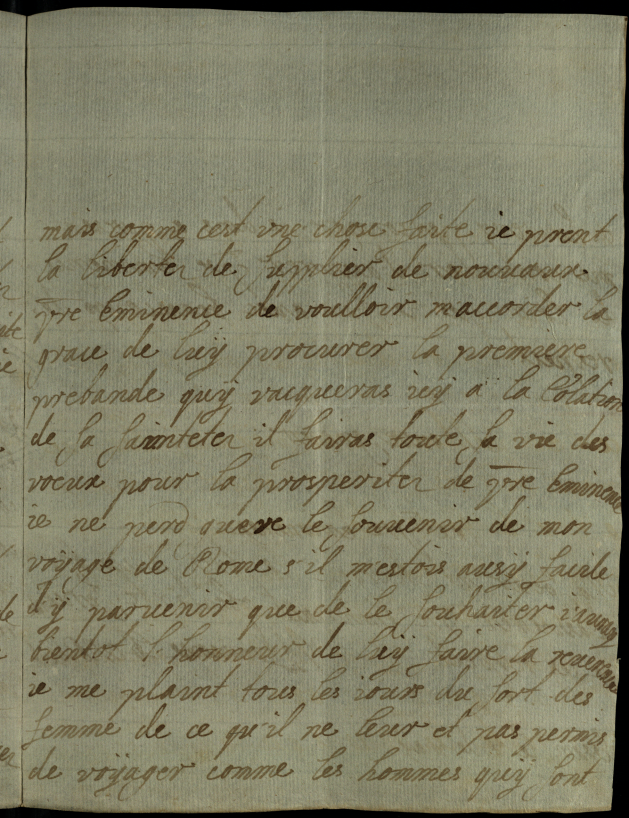 mais comme cest vne chose faite ie prent
la liberter de supplier de nouueaux
vre Eminence de voulloir maccorder la
grace de luÿ procurer la premiere
prebande quÿ vacqueras icÿ a la Colation
de sa sainteter il fairas toute sa vie des
voeux pour la prosperiter de vre Eminence
ie ne perd guere le souuenir de mon
voÿage de Rome s'il mestois ausÿ facile
d'ÿ paruenir que de le souhaiter iauray
bientot l'honneur de luÿ faire la reuerence
ie me plaint tous les iours du sort des
femme de ce qu'il ne leur et pas permis
de voÿager comme les hommes quÿ sont